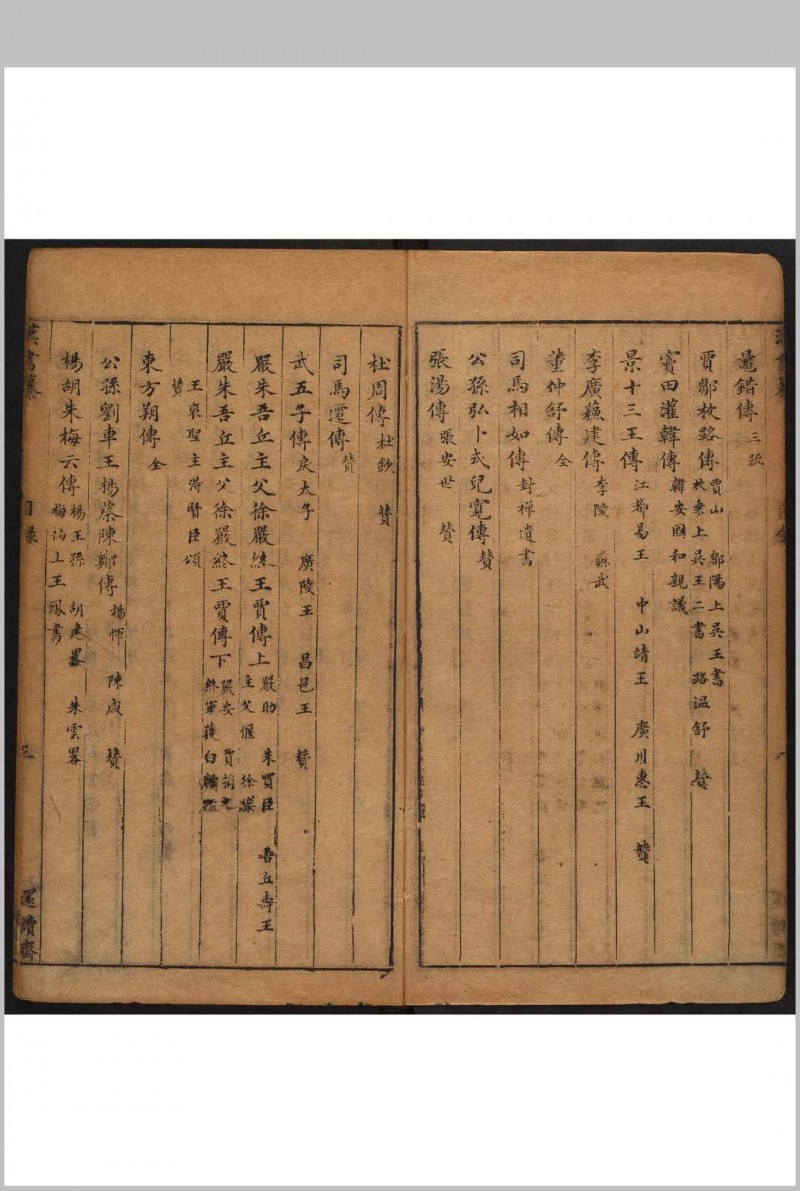 鼂錯傳 三疏
賈鄒枚路傳 賈山 鄒陽上吳王書
枚乘上吳王二書 路溫舒 贊
竇田灌韓傳 韓安國和親議
景十三王傳 江都易王 中山靖王 廣川惠王 贊
李廣蘇建傳 李陵 蘇武
董仲舒傳 全
司馬相如傳 封禪遺書
公孫弘卜式兒寬傳 贊
張湯傳 張安世 贊
杜周傳 杜欽 贊
司馬遷傳 贊
武五子傳 戾太子 廣陵王 昌邑王 贊
嚴朱吾丘主父徐嚴終王賈傳上 嚴助 朱買臣 吾丘壽王
主父偃 徐樂
嚴朱吾丘主父徐嚴終王賈傳下 嚴安 賈捐之
終軍獲白麟
王襃聖主得賢臣頌
贊
東方朔傳 全
公孫劉車王楊蔡陳鄭傳 楊惲 陳咸 贊
楊胡朱梅云傳 楊王孫 胡建畧 朱雲畧
梅福上王鳳書
漢書纂 目錄 三 還讀齋